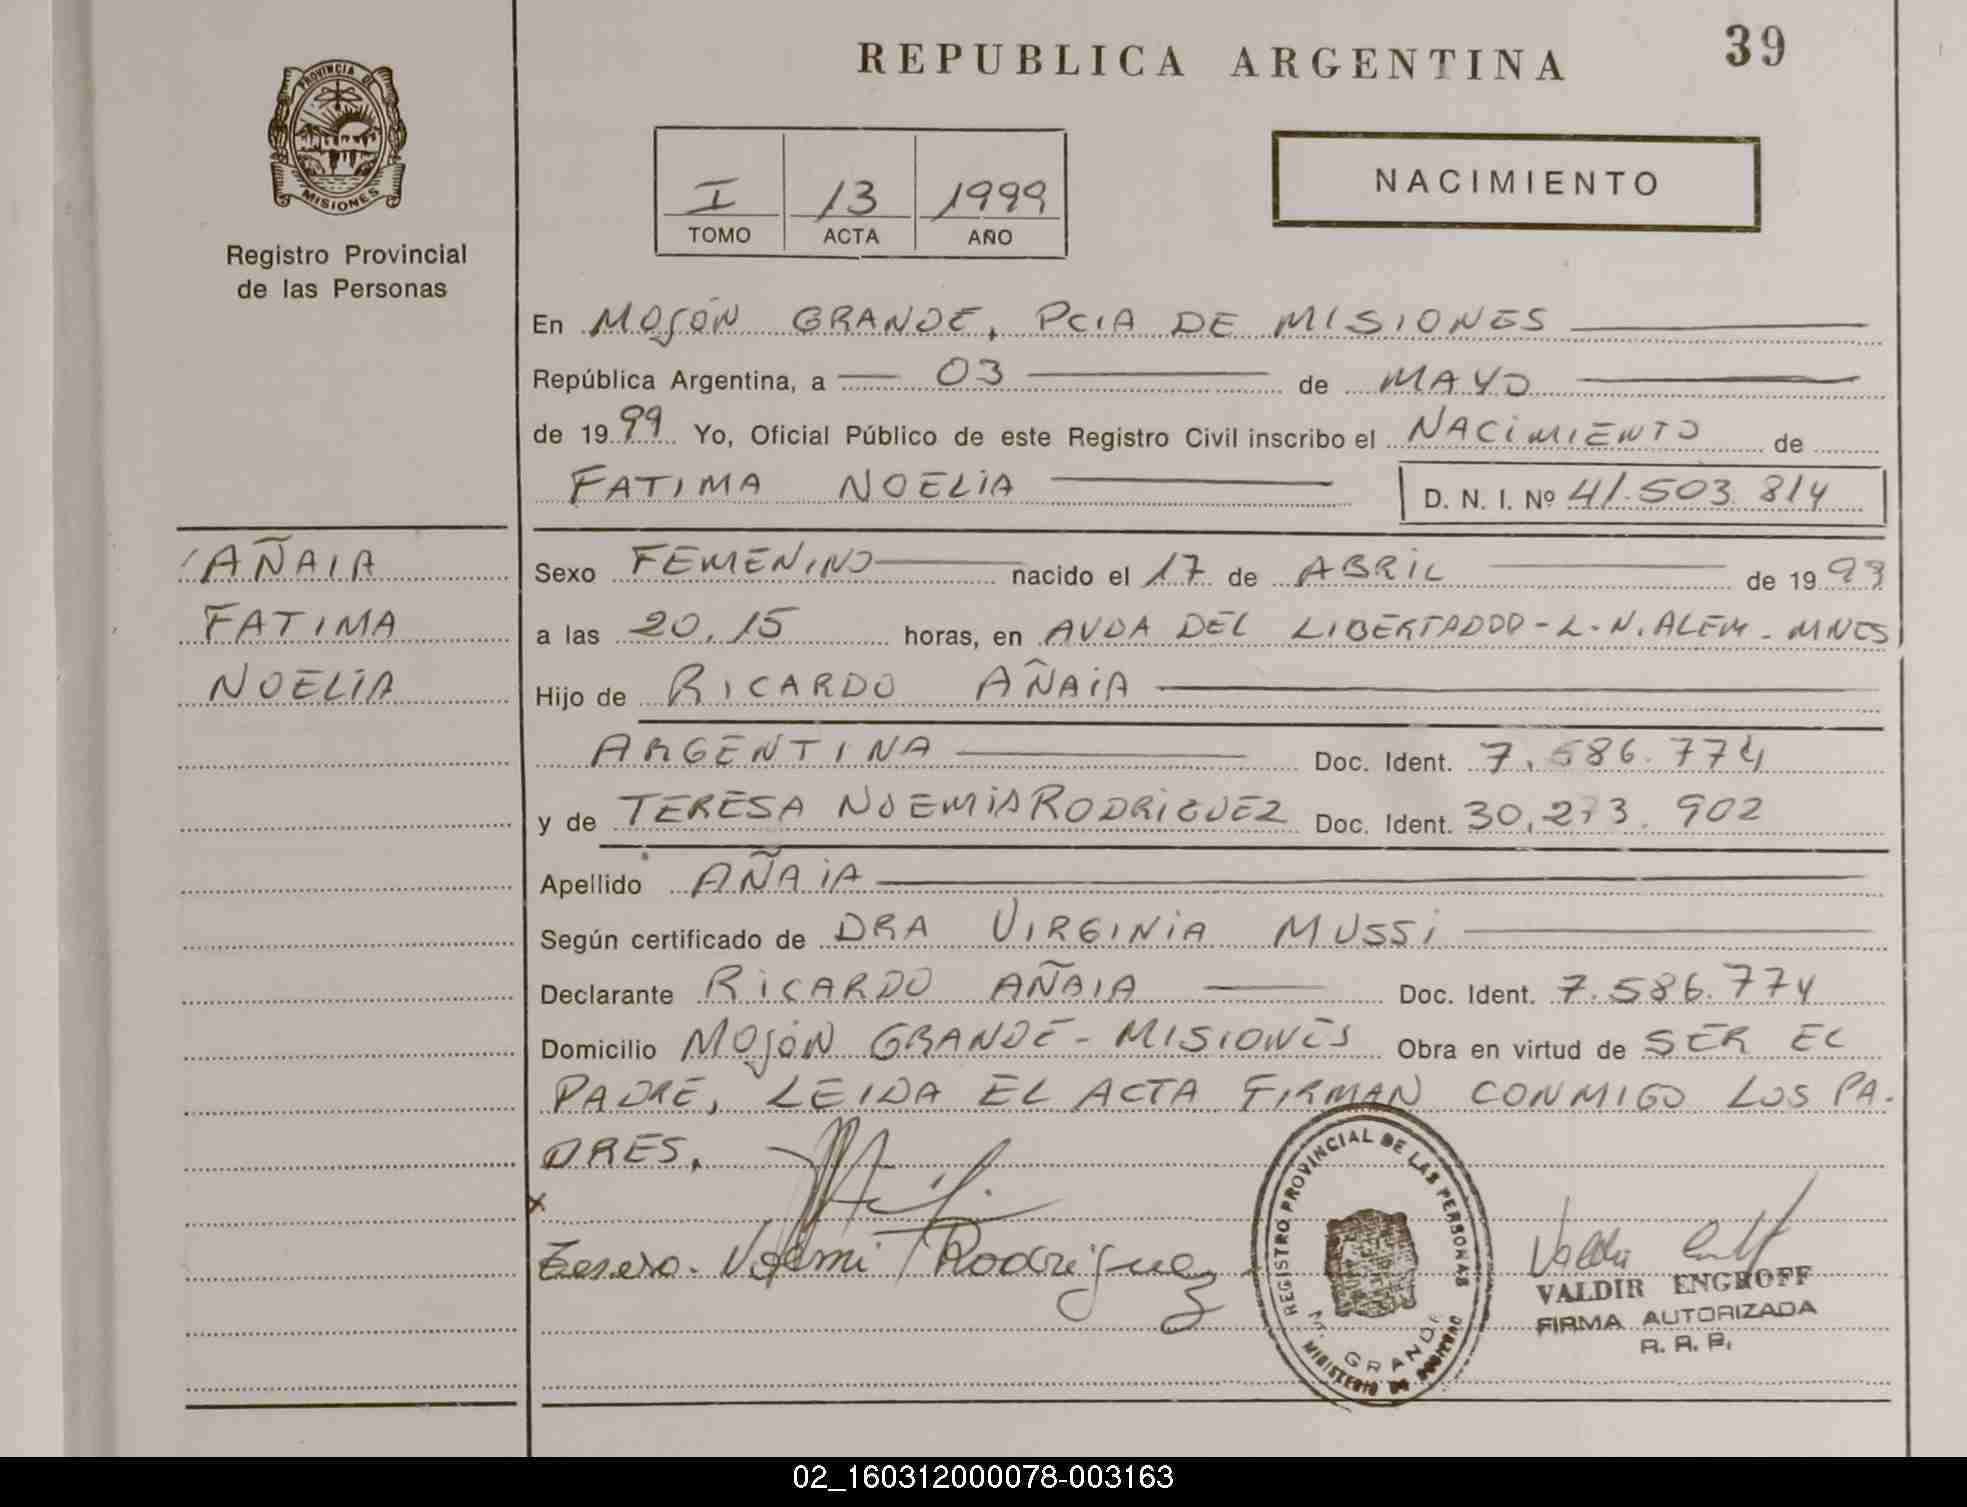 REPUBLICA ARGENTINA
39
PROVINCIA DE
MISIONES
Registro Provincial
de las Personas
I 13 1999
TOMO ACTA AÑO
NACIMIENTO
En MOJÓN GRANDE, PCIA DE MISIONES
República Argentina, a 03 de MAYO
de 1999 Yo, Oficial Público de este Registro Civil inscribo el NACIMIENTO de
FATIMA NOELIA D. N. I. Nº 41.503.814
AÑAIA
FATIMA
NOELIA
Sexo FEMENINO nacido el 17 de ABRIL de 1999
a las 20,15 horas, en AVDA DEL LIBERTADOD - L.N. ALEM - MNES
Hijo de RICARDO AÑAIA
ARGENTINA Doc. Ident. 7.586.774
y de TERESA NOEMIA RODRIGUEZ Doc. Ident. 30.273.902
Apellido AÑAIA
Según certificado de DRA VIRGINIA MUSSI
Declarante RICARDO AÑAIA Doc. Ident. 7.586.774
Domicilio MOJÓN GRANDE - MISIONES Obra en virtud de SER EL
PADRE, LEIDA EL ACTA FIRMAN CONMIGO LOS PA-
DRES.
x
Teresa. Noemi Rodriguez
REGISTRO PROVINCIAL DE LAS PERSONAS
M. GRANDE
MINISTERIO DE GOBIERNO
VALDIR ENGROFF
FIRMA AUTORIZADA
R. R. P.
02_160312000078-003163